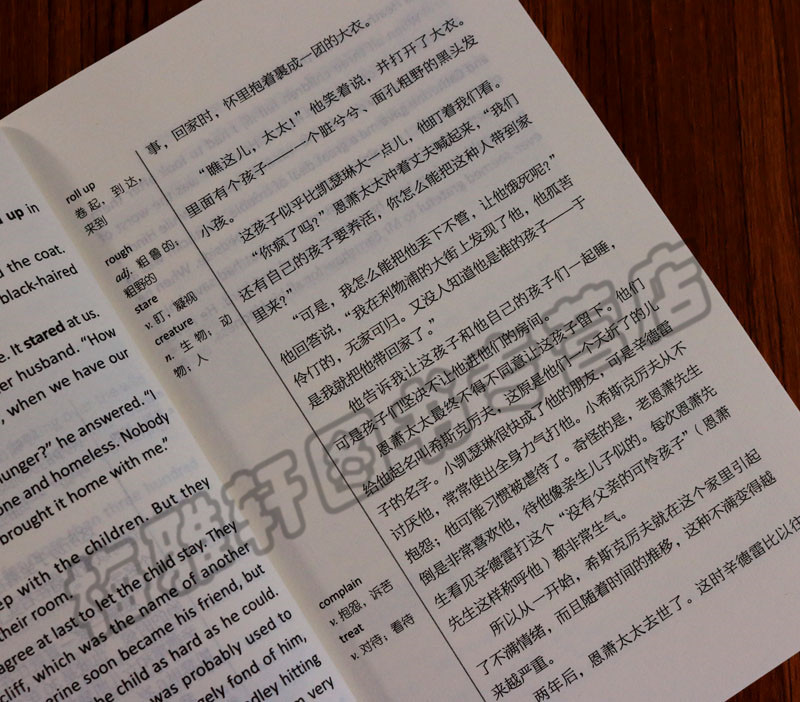 up in
the coat.
black-haired
e. It stared at us.
er husband. “How
, when we have our
hunger?” he answered. “I
one and homeless. Nobody
brought it home with me.”
ep with the children. But they
their room.
agree at last to let the child stay. They
cliff, which was the name of another
erine soon became his friend, but
the child as hard as he could.
was probably used to
gely fond of him,
dley hitting
m very
roll up
卷起，到达，
来到
rough
adj. 粗鲁的；
粗野的
stare
v. 盯，凝视
creature
n. 生物，动
物；人
complain
v. 抱怨，诉苦
treat
v. 对待；看待
事，回家时，怀里抱着裹成一团的大衣。
“瞧这儿，太太！”他笑着说，并打开了大衣。
里面有个孩子——一个脏兮兮、面孔粗野的黑头发
小孩。
这孩子似乎比凯瑟琳大一点儿，他盯着我们看。
“你疯了吗？”恩萧太太冲着丈夫喊起来，“我们
还有自己的孩子要养活，你怎么能把这种人带到家
里来？”
“可是，我怎么能把他丢下不管，让他饿死呢？”
他回答说，“我在利物浦的大街上发现了他，他孤苦
伶仃的，无家可归。又没人知道他是谁的孩子——于
是我就把他带回家了。”
他告诉我让这孩子和他自己的孩子们一起睡，
可是孩子们坚决不让他进他们的房间。
恩萧太太最终不得不同意让这孩子留下。他们
给他起名叫希斯克厉夫，这原是他们一个夭折了的儿
子的名字。小凯瑟琳很快成了他的朋友，可是辛德雷
讨厌他，常常使出全身力气打他。小希斯克厉夫从不
抱怨；他可能习惯被虐待了。奇怪的是，老恩萧先生
倒是非常喜欢他，待他像亲生儿子似的。每次恩萧先
生看见辛德雷打这个“没有父亲的可怜孩子”（恩萧
先生这样称呼他）都非常生气。
所以从一开始，希斯克厉夫就在这个家里引起
了不满情绪，而且随着时间的推移，这种不满变得越
来越严重。
两年后，恩萧太太去世了。这时辛德雷比以往
轩图书专营店